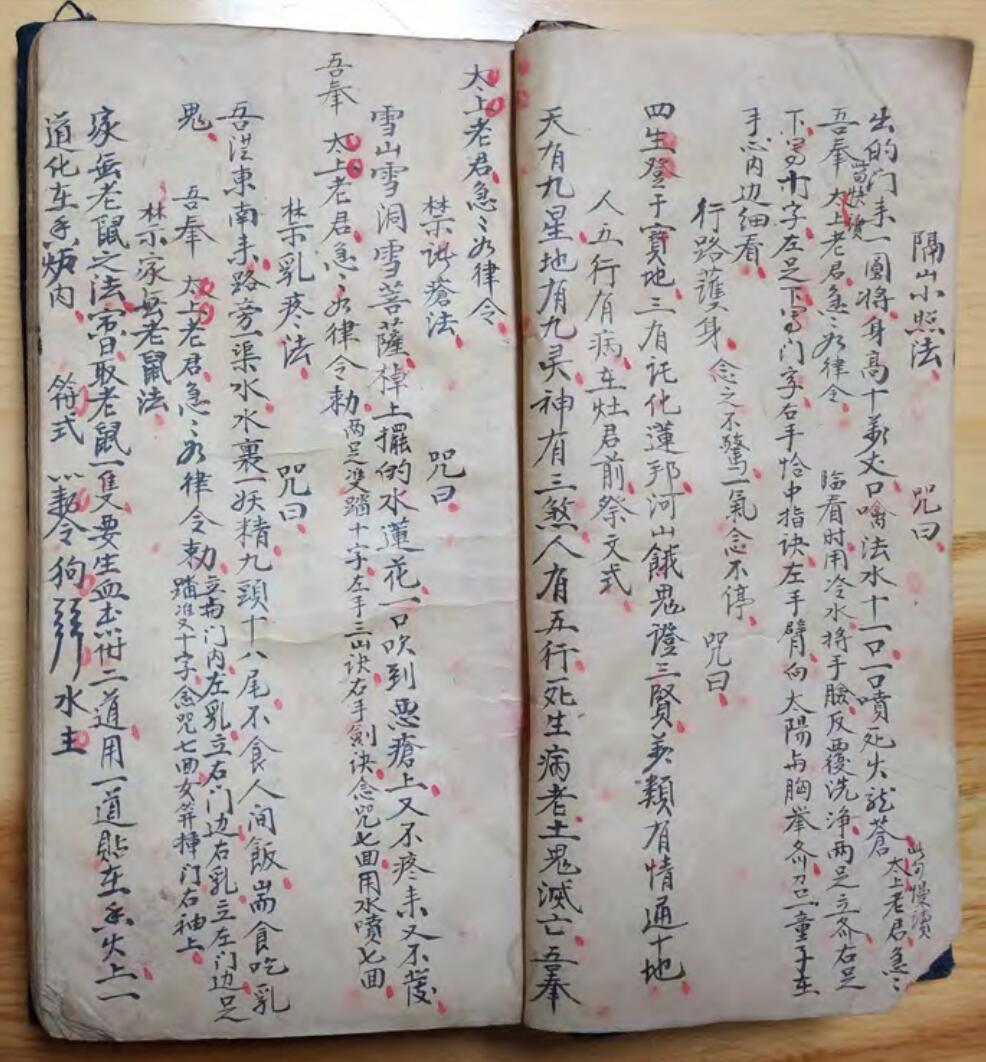 隔山小照法 咒曰
出的门来一圆将身高十万丈口噙法水十一口一口喷死火龙苍 太上老君急〻 此句慢读
吾奉太上老君急〻如律令 临看时用冷水将手脸反覆洗净两足立齐右足
下写十字左足下写门字右手恰中指诀左手臂向太阳与胸举齐召一童子在
手心内边细看
行路護身 念之不驚一氣念不停 咒曰
四生登于寳地三有託化蓮邦河山餓鬼證三賢万類有情通十地
人五行有病在灶君前祭文式
天有九星地有九灵神有三煞人有五行死生病老土鬼滅亡吾奉
太上老君急〻如律令
禁 瘡法 咒曰
雪山雪洞雪菩薩棹上擺的水蓮花一口吹到惡瘡上又不疼来又不發
吾奉
太上老君急〻如律令勅 两足雙踏十字左手三山诀右手剑诀念咒七遍用水噴七面
禁乳疼法 咒曰
吾從東南来路旁一渠水水裏一妖精九頭十八尾不食人间飯耑食吃乳
鬼 吾奉太上老君急〻如律令勅 立 门内左乳立右门边右乳立左门边足
踏 十字念咒七 女 门右袖上
禁示家無老鼠法
家無老鼠之法 日取老鼠一隻要生血 二道用一道貼在香火上一
道化在香炉内 符式 令狗 水土